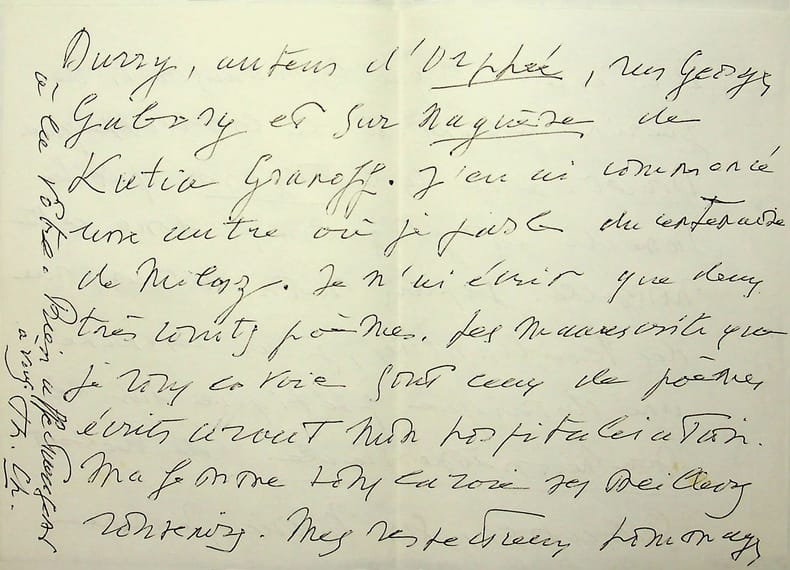 Durry, auteur d'Orphée, sur Georges
Gabory et sur Naguère de
Katia Granoff. J'en ai commencé
une autre où je parle du centenaire
de Milosz. Je n'ai écrit que deux
très courts poèmes. Les manuscrits que
je vous envoie sont ceux de poèmes
écrits avant mon hospitalisation.
Ma femme vous envoie ses meilleurs
souvenirs. Mes respectueux hommages
à la vôtre. Bien affectueusement
à vous, Fh. Ch.